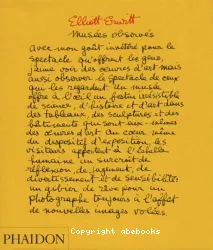 Elliott Erwitt
Musées observés
avec mon goût invétéré pour le
spectacle qu'offrent les gens,
j'aime voir des œuvres d'art mais
aussi observer le spectacle de ceux
qui les regardent. Un musée
offre à l'œil un festin irrésistible
de science, d'histoire et d'art dans
des tableaux, des sculptures et des
bâtiments qui sont eux-mêmes
des œuvres d'art. Au cœur même
du dispositif d'exposition, les
visiteurs apportent à l'échelle
humaine un surcroît de
réflexion, de jugement, de
divertissement et de sensibilité:
un gibier de rêve pour un
photographe toujours à l'affût
de nouvelles images volées.
PHAIDON
Copyright abebooks